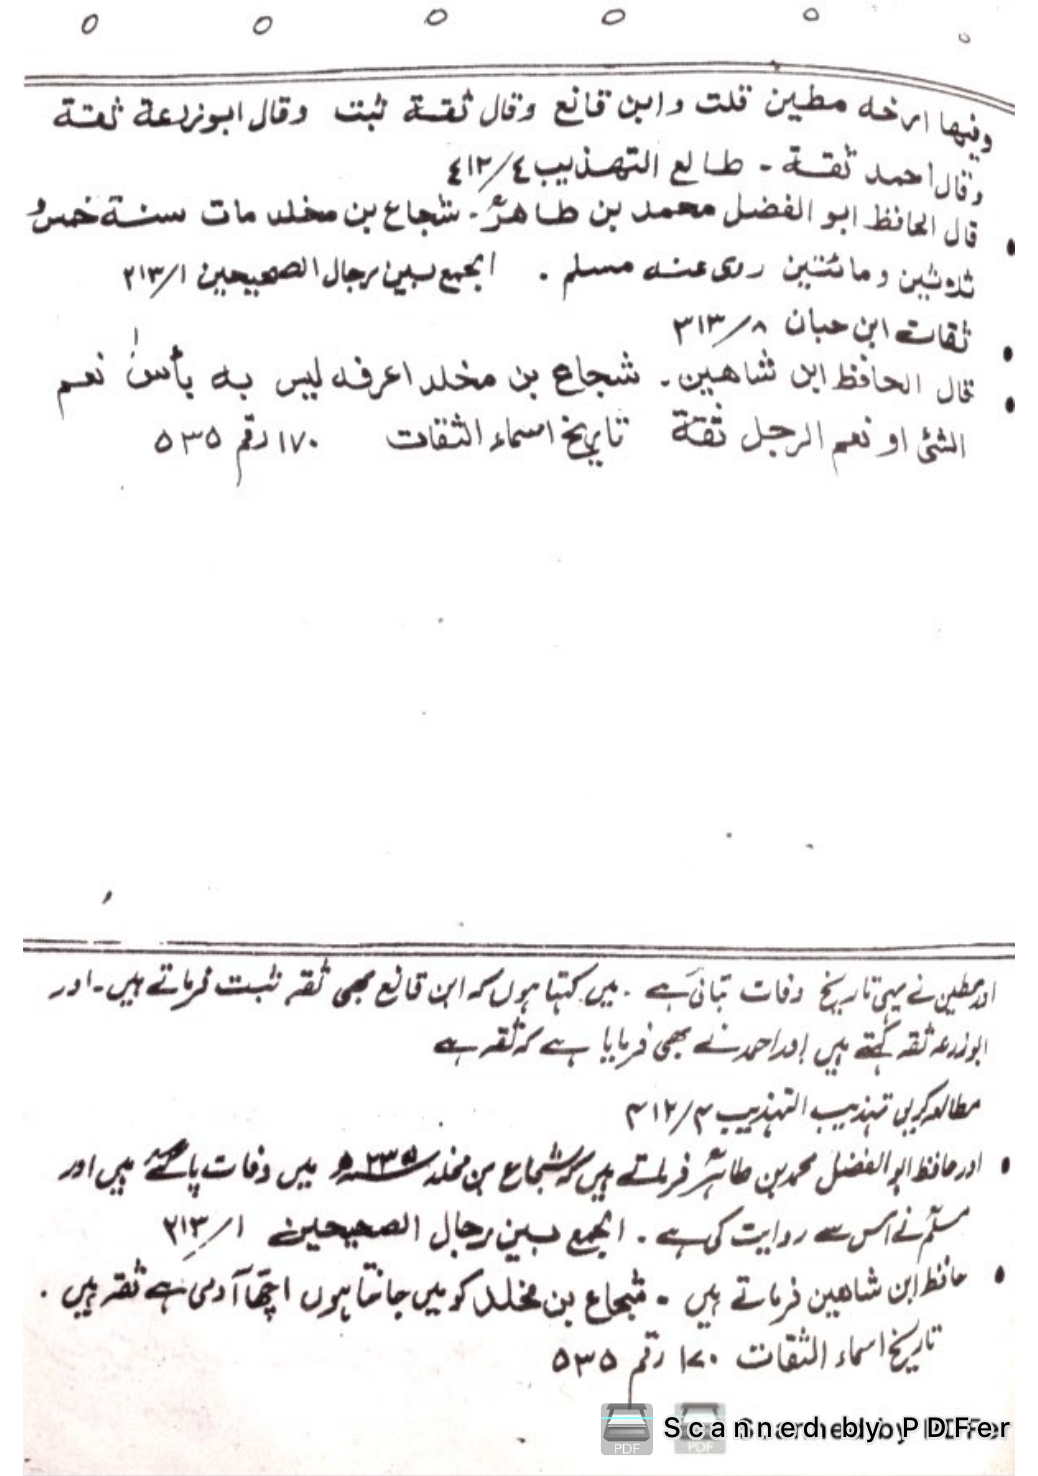 وفيها ارخه مطين قلت وابن قانع وقال ثقة ثبت وقال ابوزرعة ثقة
وقال احمد ثقة ـ طالع التهذيب ٤/٤١٢
قال الحافظ ابو الفضل محمد بن طاهرؒ ـ شجاع بن مخلد مات سنة خمس و
ثلاثين ومائتين روى عنه مسلم . الجمع بين رجال الصحيحين ٢١٣/١
ثقات ابن حبان ٣١٣/٨
قال الحافظ ابن شاهين ـ شجاع بن مخلد اعرفه ليس به بأس نعم
الشئ او نعم الرجل ثقة تاريخ اسماء الثقات ١٧٠ رقم ٥٣٥
اور مطین نے یہی تاریخ وفات بتائی ہے ۔ میں کہتا ہوں کہ ابن قانع بھی ثقہ ثبت فرماتے ہیں ۔ اور
ابوزرعہ ثقہ کہتے ہیں اور احمد نے بھی فرمایا ہے کہ ثقہ ہے
مطالعہ کریں تہذیب التہذیب ۴/۳۱۲
اور حافظ ابو الفضل محمد بن طاہرؒ فرماتے ہیں کہ شجاع بن مخلد ۲۳۵ھ میں وفات پا گئے ہیں اور
مسلم نے اس سے روایت کی ہے ۔ الجمع بين رجال الصحيحين ۲۱۳/۱
حافظ ابن شاھین فرماتے ہیں ۔ شجاع بن مخلد کو میں جانتا ہوں اچھا آدمی ہے ثقہ ہیں ۔
تاریخ اسماء الثقات ۱۷۰ رقم ۵۳۵
Scanned by PDFer